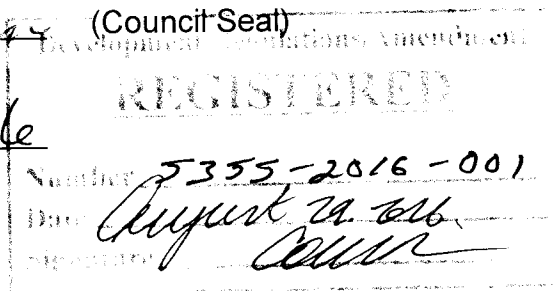 (Council Seal)
Development Regulations Amendment
REGISTERED
Number 5355-2016-001
Date August 29, 2016.
Signature